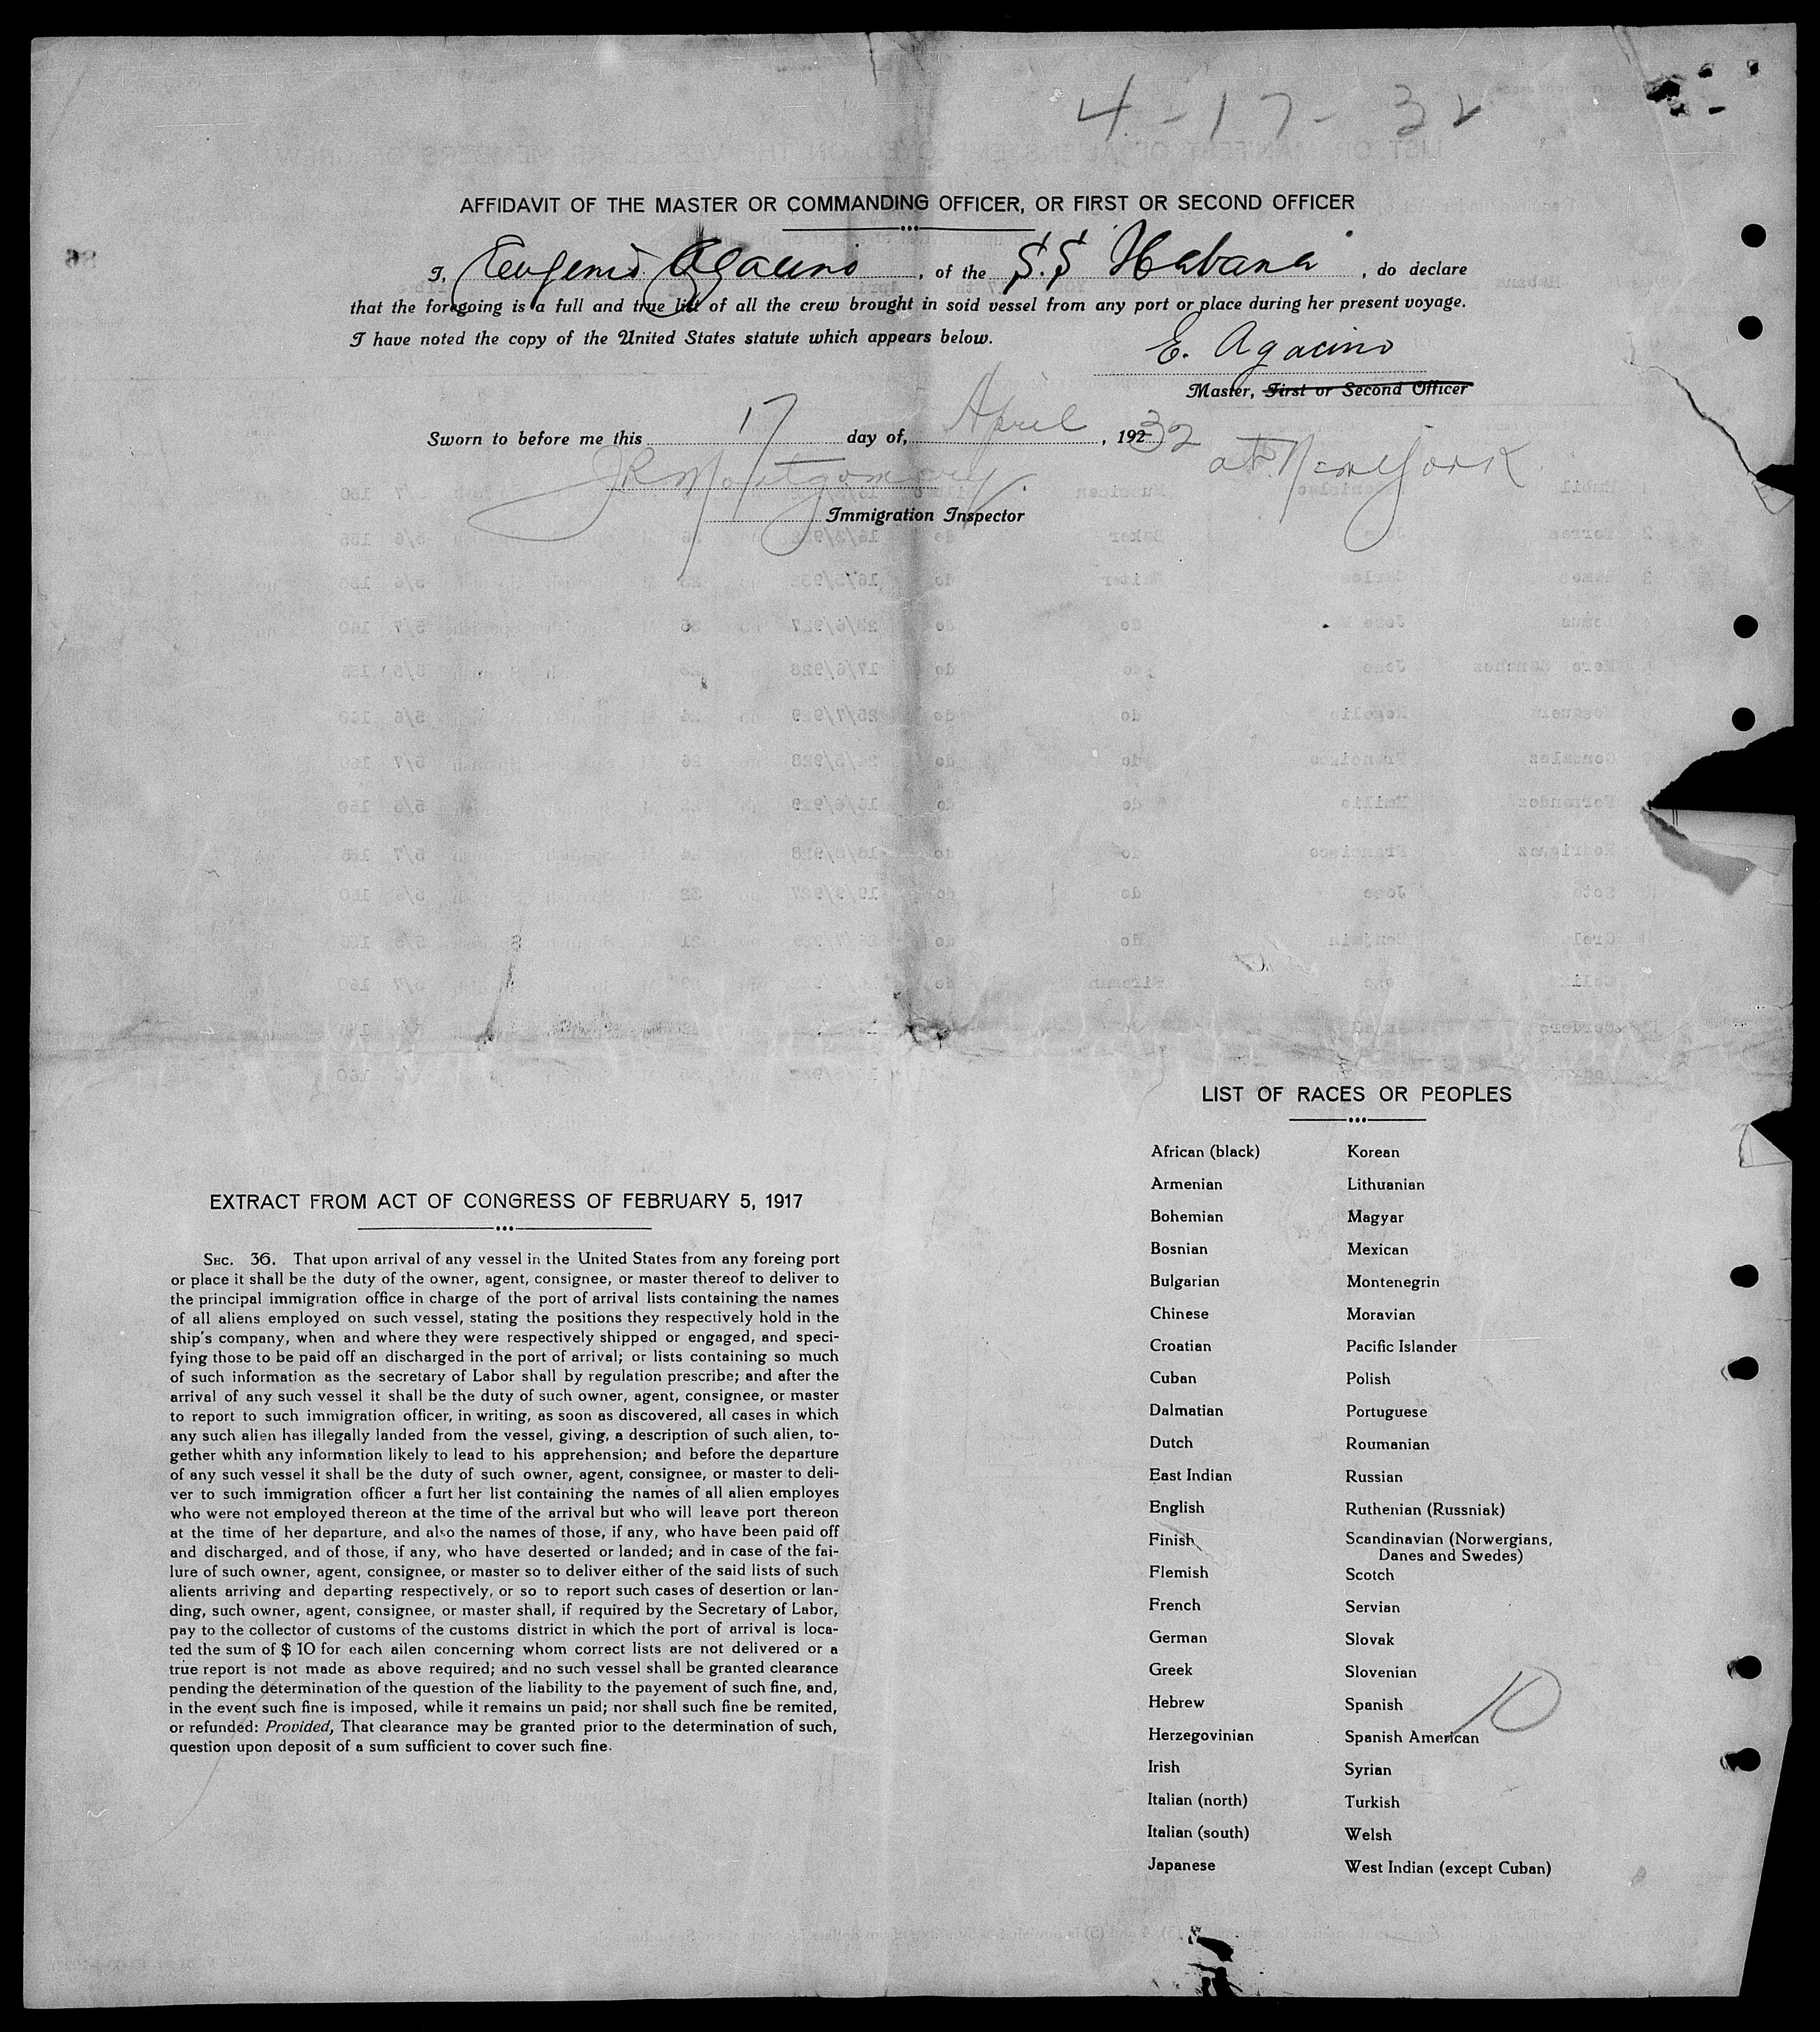 4-17-32
AFFIDAVIT OF THE MASTER OR COMMANDING OFFICER, OR FIRST OR SECOND OFFICER
I, Eugenio Agacino, of the S.S Habana, do declare
that the foregoing is a full and true list of all the crew brought in soid vessel from any port or place during her present voyage.
I have noted the copy of the United States statute which appears below.
E. Agacino
Master, First or Second Officer
Sworn to before me this 17 day of, April, 192 32 at New York
JR Montgomery
Immigration Inspector
EXTRACT FROM ACT OF CONGRESS OF FEBRUARY 5, 1917
SEC. 36. That upon arrival of any vessel in the United States from any foreing port
or place it shall be the duty of the owner, agent, consignee, or master thereof to deliver to
the principal immigration office in charge of the port of arrival lists containing the names
of all aliens employed on such vessel, stating the positions they respectively hold in the
ship's company, when and where they were respectively shipped or engaged, and speci-
fying those to be paid off an discharged in the port of arrival; or lists containing so much
of such information as the secretary of Labor shall by regulation prescribe; and after the
arrival of any such vessel it shall be the duty of such owner, agent, consignee, or master
to report to such immigration officer, in writing, as soon as discovered, all cases in which
any such alien has illegally landed from the vessel, giving, a description of such alien, to-
gether whith any information likely to lead to his apprehension; and before the departure
of any such vessel it shall be the duty of such owner, agent, consignee, or master to deli-
ver to such immigration officer a furt her list containing the names of all alien employes
who were not employed thereon at the time of the arrival but who will leave port thereon
at the time of her departure, and also the names of those, if any, who have been paid off
and discharged, and of those, if any, who have deserted or landed; and in case of the fai-
lure of such owner, agent, consignee, or master so to deliver either of the said lists of such
alients arriving and departing respectively, or so to report such cases of desertion or lan-
ding, such owner, agent, consignee, or master shall, if required by the Secretary of Labor,
pay to the collector of customs of the customs district in which the port of arrival is loca-
ted the sum of $ 10 for each ailen concerning whom correct lists are not delivered or a
true report is not made as above required; and no such vessel shall be granted clearance
pending the determination of the question of the liability to the payement of such fine, and,
in the event such fine is imposed, while it remains un paid; nor shall such fine be remited,
or refunded: Provided, That clearance may be granted prior to the determination of such,
question upon deposit of a sum sufficient to cover such fine.
LIST OF RACES OR PEOPLES
African (black) Korean
Armenian Lithuanian
Bohemian Magyar
Bosnian Mexican
Bulgarian Montenegrin
Chinese Moravian
Croatian Pacific Islander
Cuban Polish
Dalmatian Portuguese
Dutch Roumanian
East Indian Russian
English Ruthenian (Russniak)
Finish Scandinavian (Norwergians,
Danes and Swedes)
Flemish Scotch
French Servian
German Slovak
Greek Slovenian
Hebrew Spanish
Herzegovinian Spanish American
Irish Syrian
Italian (north) Turkish
Italian (south) Welsh
Japanese West Indian (except Cuban)
10